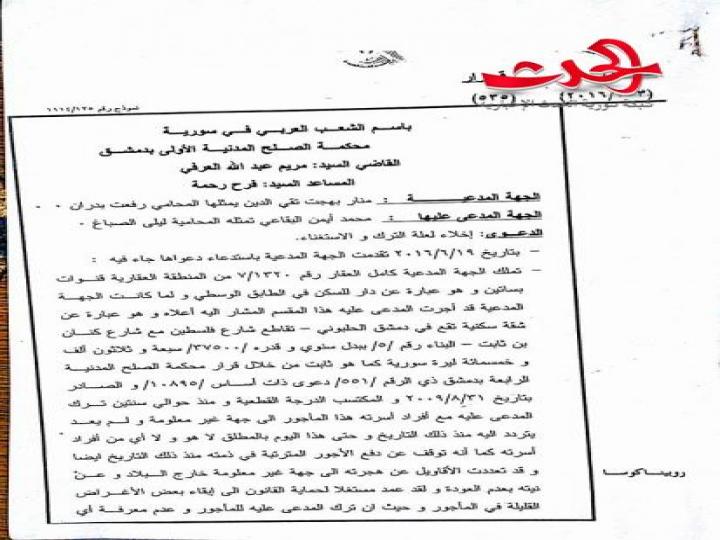 الحدث
رار
(٥٣٥)
نموذج رقم ١١١٤/١٣٥
باسم الشعب العربي في سورية
محكمة الصلح المدنية الأولى بدمشق
القاضي السيد: مريم عبد الله العرفي
المساعد السيد: فرح رحمة
الجهة المدعية : منار بهجت تقي الدين يمثلها المحامي رفعت بدران
الجهة المدعى عليها : محمد أيمن البقاعي تمثله المحامية ليلى الصباغ
الدعوى: إخلاء لعلة الترك و الاستغناء.
– بتاريخ ٢٠١٦/٦/١٩ تقدمت الجهة المدعية باستدعاء دعواها جاء فيه :
– تملك الجهة المدعية كامل العقار رقم ٧/١٣٢٠ من المنطقة العقارية قنوات
بساتين و هو عبارة عن دار للسكن في الطابق الوسطي و لما كانت الجهة
المدعية قد أجرت المدعى عليه هذا المقسم المشار اليه أعلاه و هو عبارة عن
شقة سكنية تقع في دمشق الحلبوني – تقاطع شارع فلسطين مع شارع كنان
بن ثابت – البناء رقم /٥/ ببدل سنوي و قدره /٣٧٥٠٠/ سبعة و ثلاثون ألف
و خمسمائة ليرة سورية كما هو ثابت من خلال قرار محكمة الصلح المدنية
الرابعة بدمشق ذي الرقم /٥٥١/ دعوى ذات أساس /١٠٨٩٥/ و الصادر
بتاريخ ٢٠٠٩/٨/٣١ و المكتسب الدرجة القطعية و منذ حوالي سنتين ترك
المدعى عليه مع أفراد أسرته هذا المأجور الى جهة غير معلومة و لم يعد
يتردد اليه منذ ذلك التاريخ و حتى هذا اليوم بالمطلق لا هو و لا أي من أفراد
أسرته كما أنه توقف عن دفع الأجور المترتبة في ذمته منذ ذلك التاريخ ايضا
و قد تعددت الأقاويل عن هجرته الى جهة غير معلومة خارج البلاد و عن
نيته بعدم العودة و لقد عمد مستغلا لحماية القانون الى إبقاء بعض الأغراض
القليلة في المأجور و حيث ان ترك المدعى عليه للمأجور و عدم معرفة أي
روبيناكوسا